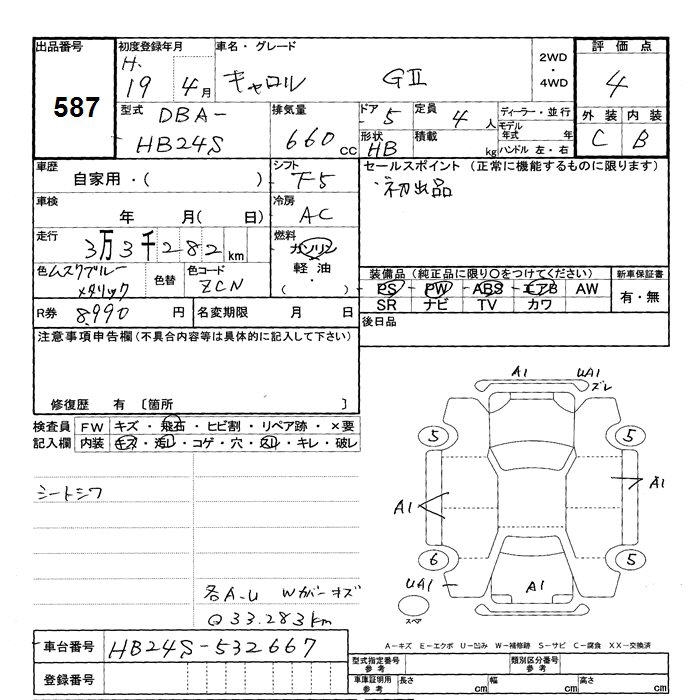 出品番号
587
初度登録年月
H. 19 年 4 月
車名・グレード
キャロル GII
2WD
・
4WD
評価点
4
外装 内装
C B
型式
DBA-
HB24S
排気量
660 cc
ドア 5
形状 HB
定員 4 人
積載 kg
ディーラー・並行
モデル年式 年
ハンドル 左・右
車歴
自家用・( )
シフト
F5
セールスポイント (正常に機能するものに限ります)
初出品
車検
年 月( 日)
冷房
AC
走行
3万3千282km
燃料
ガソリン
軽油
( )
色 ムスクブルーメタリック
色替
色コード
ZCN
装備品 (純正品に限り○をつけてください)
PS PW ABS エアB AW
SR ナビ TV カワ
新車保証書
有・無
R券 8,990 円
名変期限 月 日
後日品
注意事項申告欄(不具合内容等は具体的に記入して下さい)
修復歴 有 〔箇所 〕
検査員記入欄
FW キズ・飛石・ヒビ割・リペア跡・×要
内装 キズ・汚レ・コゲ・穴・スレ・キレ・破レ
シートシワ
各A-U Wガバーキズ
Q 33.283km
A1 UA1
ズレ
5 5
A1 A1
6 5
UA1 A1
スペア
A-キズ E-エクボ U-凹み W-補修跡 S-サビ C-腐食 XX-交換済
車台番号 HB24S-532667
登録番号
型式指定番号 参考
類別区分番号 参考
車庫証明用 参考
長さ cm 幅 cm 高さ cm